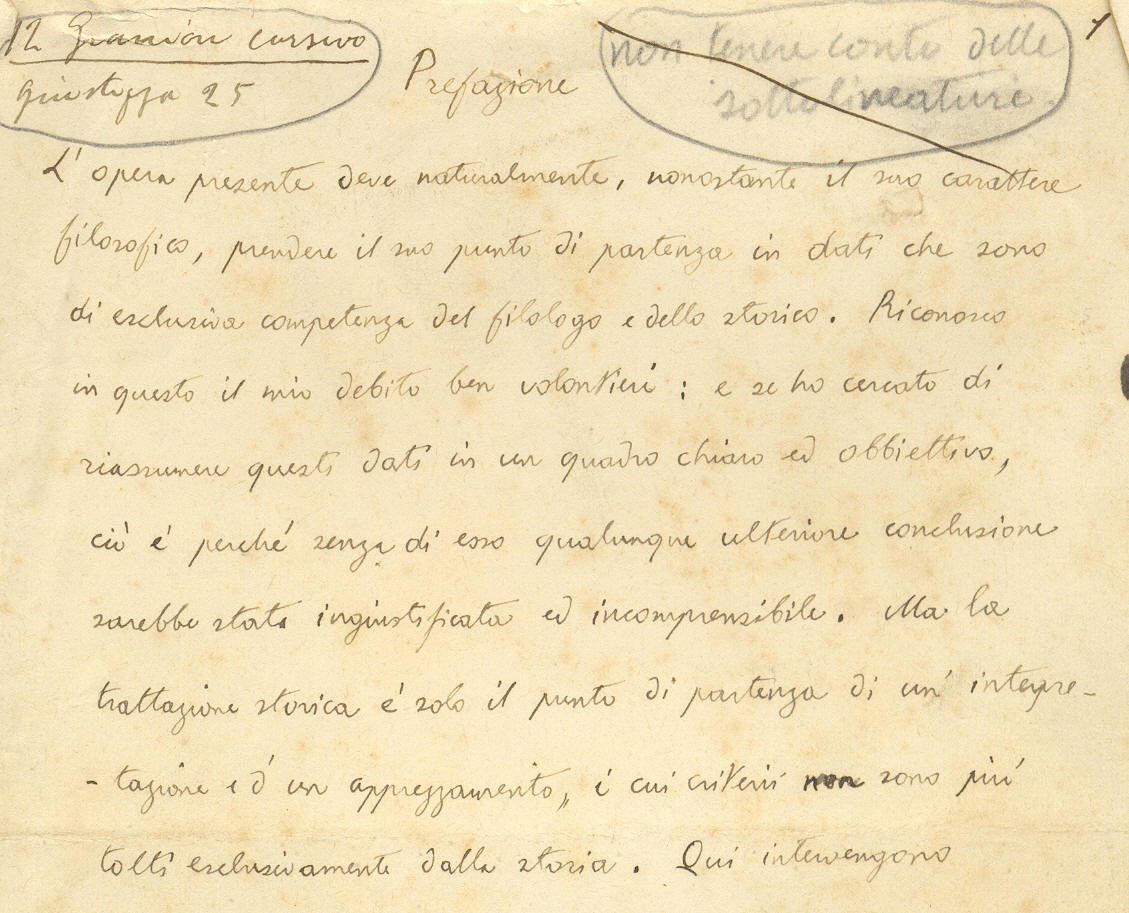 12 cursivo
giustezza 25
non tenere conto delle
sottolineature.
1
Prefazione
L' opera presente deve naturalmente, nonostante il suo carattere
filosofico, prendere il suo punto di partenza in dati che sono
di esclusiva competenza del filologo e dello storico. Riconosco
in questo il mio debito ben volontieri : e se ho cercato di
riassumere questi dati in un quadro chiaro ed obbiettivo,
ciò é perché senza di esso qualunque ulteriore conclusione
sarebbe stata ingiustificata ed incomprensibile. Ma la
trattazione storica é solo il punto di partenza di un' interpre-
- tazione e d' un apprezzamento, i cui criterii non sono piú
tolti esclusivamente dalla storia. Qui intervengono